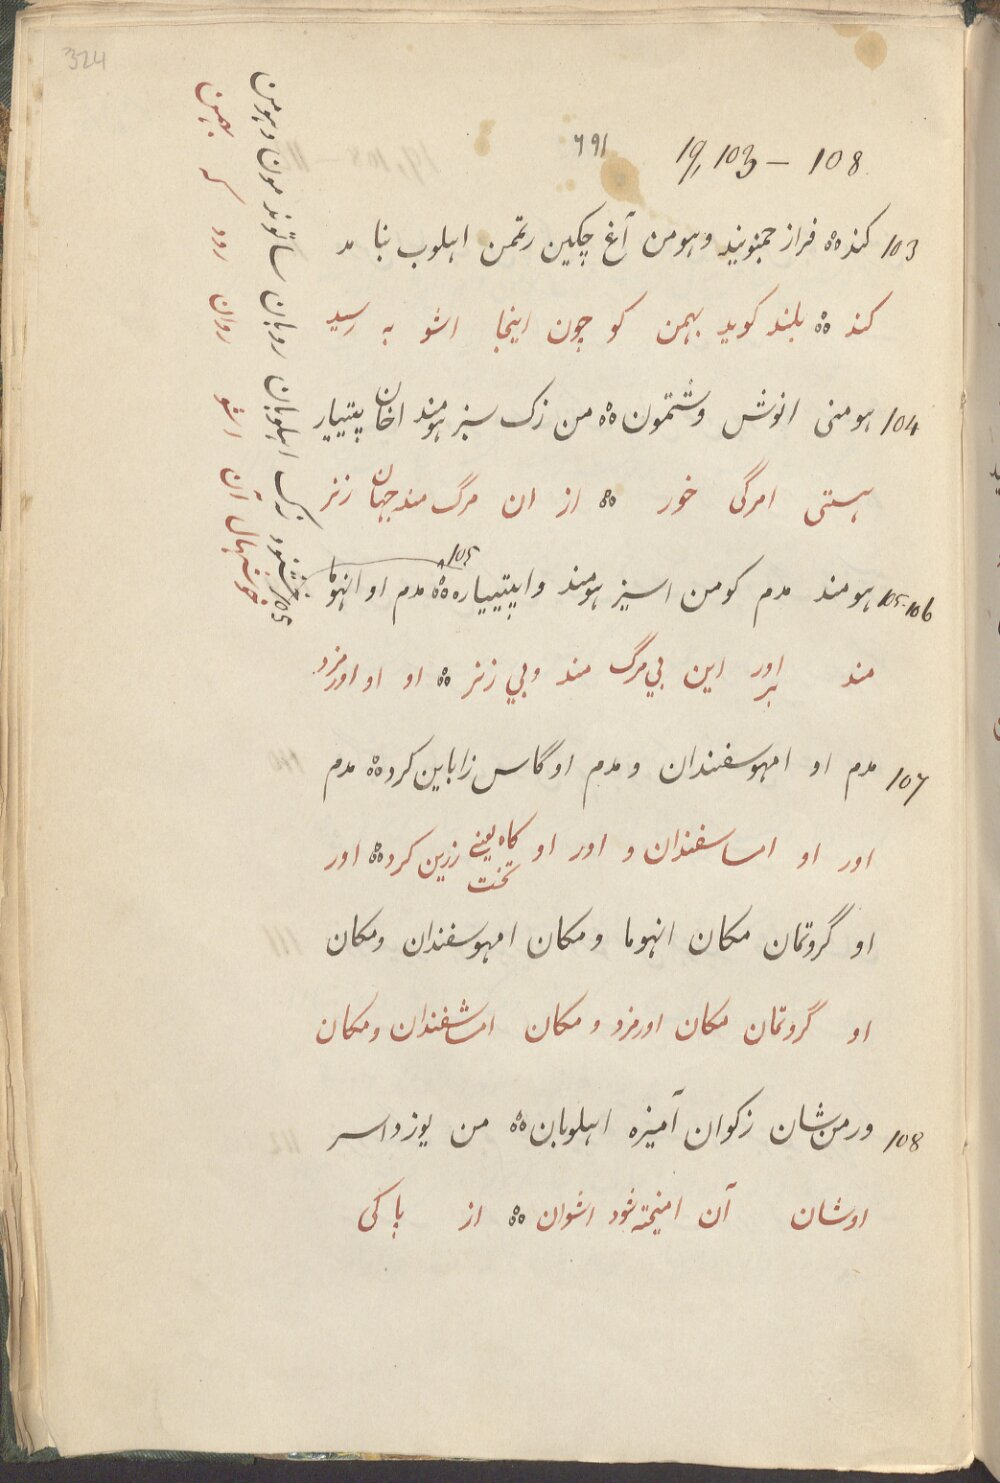 324
691
19, 103 – 108
103 کنده فراز جمنونید وهومن آغ چکین رتمن اهلوب بنا مد
کنده بلند کوید بهمن کو چون اینجا اشو به رسید
104 هومنی انوش وشتمون من زک سبز هومند اخان پتییار
هستی امرگی خور از ان مرگ مند جهان زنز
105
105-106 هومند مدم کومن اسیز هومند واپتییاره مدم او انهوما
مند اور بر این بی مرگ مند وبی زنز او او اورمزد
107 مدم او امهوسفندان و مدم او گاس زاباین کرده مدم
اور او امساسفندان و اور او گاه یعنے تخت زرین کرده اور
او گروتمان مکان انهوما و مکان امهوسفندان ومکان
او گروتمان مکان اورمزد و مکان امشاشفندان ومکان
108 ورمن شان زکوان آمیزه اهلوبان من یوزداسر
اوشان آن امیخته شود اشوان از پاکی
105 خشنود زک اهلوبان روبان ساتوند مون وهومن
خوشحال آن اشو روان رود که بهمن